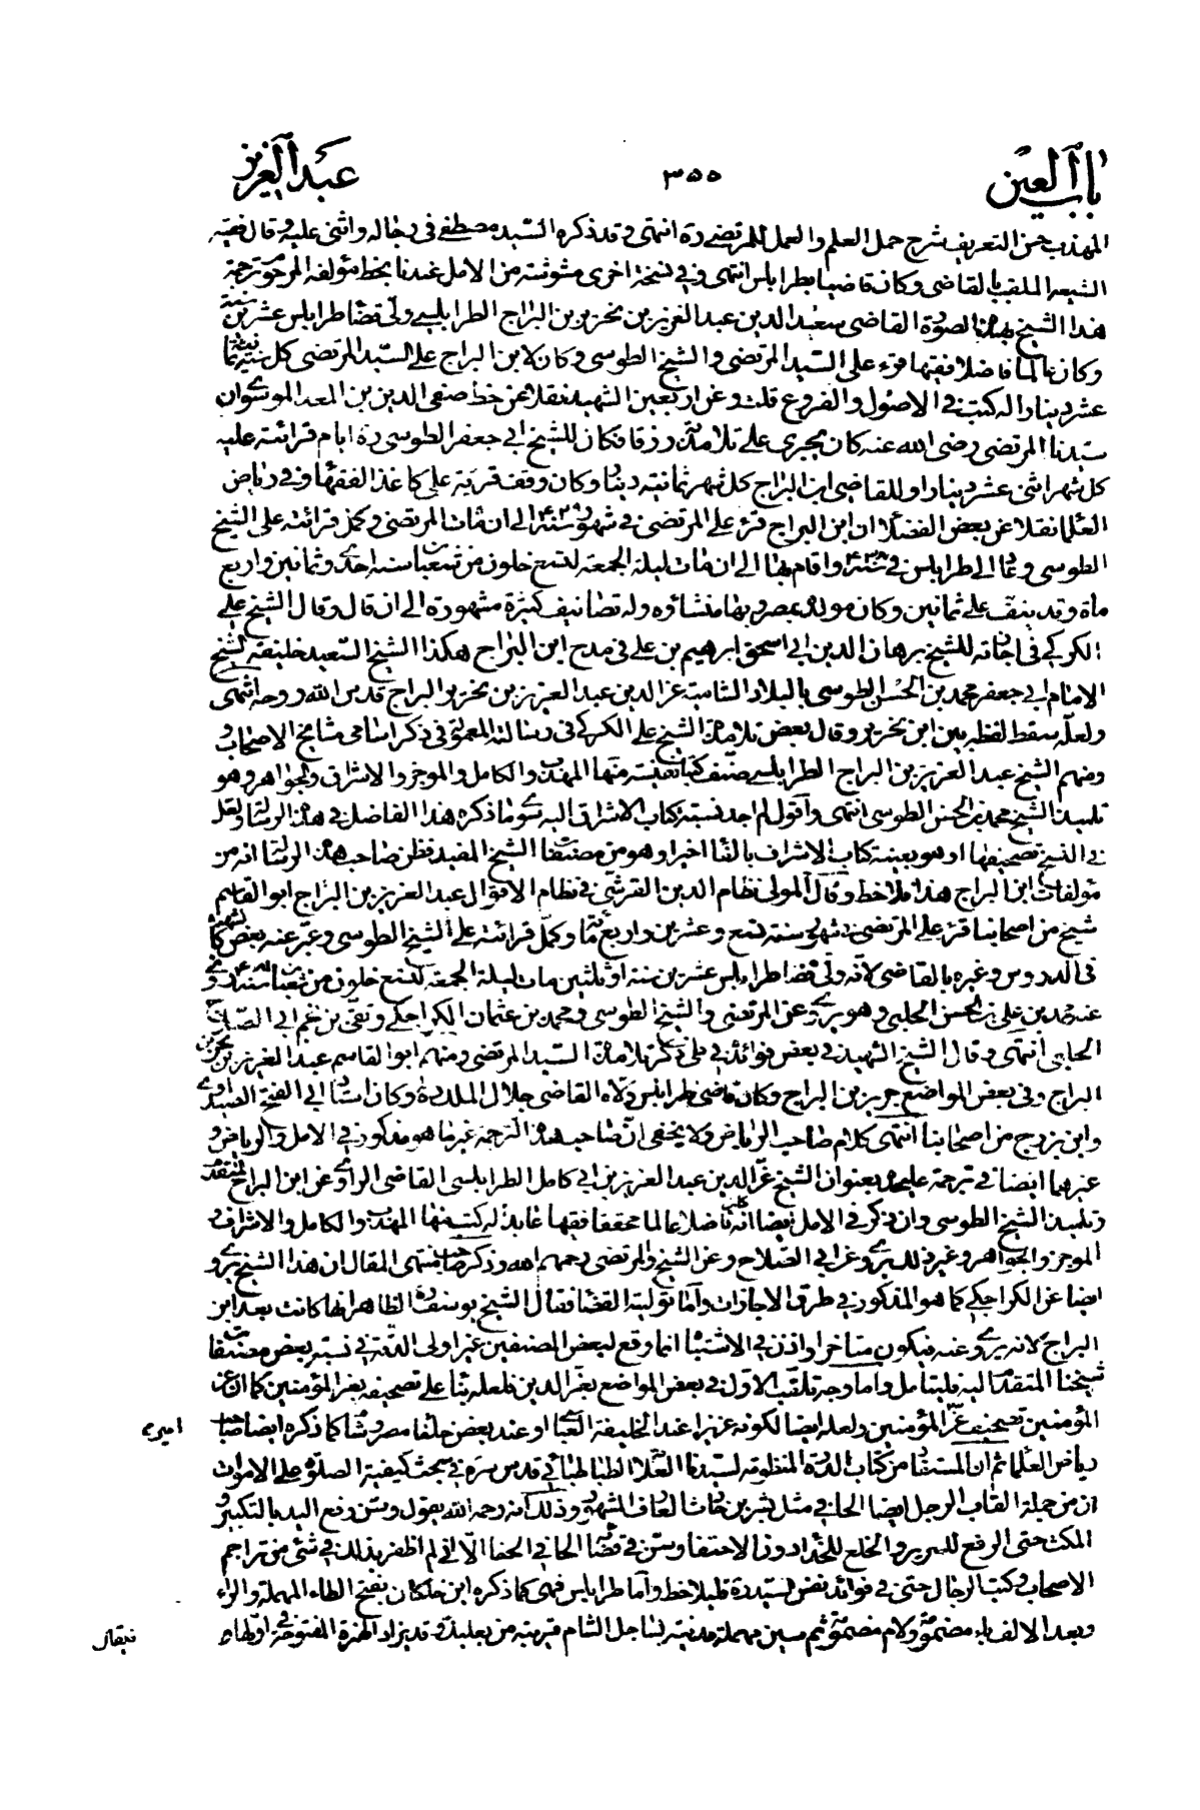 باب العين
٣٥٥
عبد العزيز
المهذب حسن التعريف شرح جمل العلم والعمل للمرتضى ره انتهى وقد ذكره السيد مصطفى فى رجاله واثنى عليه وقال فقيه
الشيعه الملقب بالقاضى وكان قاضيا بطرابلس انتهى وفى نسخة اخرى من الامل عندنا بخط مؤلفه المرحوم ترجمة
هذا الشيخ بهذه الصورة القاضى سعد الدين عبد العزيز بن نحرير بن البراج الطرابلسى ولى قضا طرابلس عشرين سنة
وكان عالما فاضلا فقيها قرء على السيد المرتضى والشيخ الطوسى وكان لابن البراج على السيد المرتضى كل شهر ثمانية
عشر دينارا له كتب فى الاصول والفروع قلت وعن اربعين الشهيد نقلا عن خط صفى الدين بن المعد الموسوى ان
سيدنا المرتضى رضى الله عنه كان يجرى على تلامذته رزقا فكان للشيخ ابى جعفر الطوسى ره ايام قرائته عليه
كل شهر اثنى عشر دينارا وللقاضى ابن البراج كل شهر ثمانية دينار وكان وقف قرية على كاغذ الفقهاء وفى رياض
العلماء نقلا عن بعض الفضلا ان ابن البراج قرء على المرتضى فى شهور سنة ٤٢٩ الى ان مات المرتضى وكمل قرائته على الشيخ
الطوسى وعاد الى طرابلس فى سنة ٤٣٨ واقام بها الى ان مات ليلة الجمعة لتسع خلون من شعبان سنة احدى وثمانين واربع
مأة وقد نيف على ثمانين وكان مولده بمصر وبها منشاؤه وله تصانيف كثيرة مشهورة الى ان قال وقال الشيخ على
الكركى فى اجازته للشيخ برهان الدين ابى اسحق ابرهيم بن على فى مدح ابن البراج هكذا الشيخ السعيد خليفة الشيخ
الامام ابى جعفر محمد بن الحسن الطوسى بالبلاد الشامية عز الدين عبد العزيز بن نحرير البراج قدس الله روحه انتهى
ولعله سقط لفظه بين ابن نحرير وقال بعض تلامذة الشيخ على الكركى فى رسالته المعمولة فى ذكر اسامى مشايخ الاصحاب و
ومنهم الشيخ عبد العزيز بن البراج الطرابلسى صنف كتبا نفيسة منها المهذب والكامل والموجز والاشراق والجواهر وهو
تلميذ الشيخ محمد بن الحسن الطوسى انتهى واقول لم اجد نسبة كتاب الاشراق اليه سوى ما ذكره هذا الفاضل فى هذه الرسالة ولعل
فى النسخ تصحيفها او هو بعينه كتاب الاشراف بالفاء اخيرا وهو من مصنفات الشيخ المفيد فظن صاحب هذه الرسالة انه من
مؤلفات ابن البراج هذا فلاحظ وقال المولى نظام الدين القرشى فى نظام الاقوال عبد العزيز بن البراج ابو القاسم
شيخ من اصحابنا قرء على المرتضى فى شهور سنة تسع وعشرين واربع مائة وكمل قرائته على الشيخ الطوسى وعبر عنه بعض كالشهيد
فى الدروس وغيره بالقاضى لانه ولى قضا طرابلس عشرين سنة او ثلثين مات ليلة الجمعة لتسع خلون من شعبان سنة ٤٨١
عنه محمد بن على بن الحسن الحلبى وهو يروى عن المرتضى والشيخ الطوسى ومحمد بن عثمان الكراجكى وتقى بن نجم ابى الصلاح
الحلبى انتهى وقال الشيخ الشهيد فى بعض فوائده فى طى ذكر تلامذة السيد المرتضى ومنهم ابو القاسم عبد العزيز بن نحرير بن
البراج وفى بعض المواضع جرير بن البراج وكان قاضى طرابلس ولاه القاضى جلال الملك ره وكان استاد ابى الفتح الصيداوى
وابن بزوج من اصحابنا انتهى كلام صاحب الرياض ولا يخفى ان صاحب هذه الترجمة غير ما هو مذكور فى الامل والرياض و
غيرهما ايضا فى ترجمة عليحده بعنوان الشيخ عز الدين عبد العزيز بن ابى كامل الطرابلسى القاضى الراوى عن ابن البراج المتقدم
وتلميذ الشيخ الطوسى وان ذكر فى الامل ايضا انه كان فاضلا عالما محققا فقيها عابدا له كتب منها المهذب والكامل والاشراق و
الموجز والجواهر وغير ذلك يروى عن ابى الصلاح وعن الشيخ والمرتضى رحمهم الله وذكر صاحب منتهى المقال ان هذا الشيخ يروى
ايضا عن الكراجكى كما هو المذكور فى طرق الاجازات واما توليته القضا فقال الشيخ يوسف ره الظاهر انها كانت بعد ابن
البراج لانه يروى عنه فيكون متاخرا واذن فى الاشتباه انما وقع لبعض المصنفين غير اولى الدقة فى نسبة بعض مصنفات
شيخنا المتقدم اليه فليتامل واما وجه تلقب الاول فى بعض المواضع بعز الدين فلعله بناء على تصحيفه بعز المؤمنين كما ان عز
المؤمنين تصحيف عز المؤمنين ولعله ايضا لكونه عزيزا عند الخليفة العباسى او عند بعض خلفا مصر وشام كما ذكره ايضا صاحب
رياض العلماء ثم ان المستفاد من كتاب الدرة المنظومة لسيدنا العلامة الطباطبائى قدس سره فى بحث كيفية الصلوة على الاموات
ان من جملة القاب الرجل ايضا الحافى مثل بشر بن حارث العارف المشهور وذلك انه رحمه الله يقول وسن رفع اليد بالتكبير و
المكث حتى الرفع للسرير والخلع للحذاء دون الاحتفاء وسن فى قضاء الحافى الحفا الا انى لم اظفر بذلك فى شئ من تراجم
الاصحاب وكتب الرجال حتى فى فوائد نفس السيد ره فليلاحظ واما طرابلس فهى كما ذكره ابن خلكان بفتح الطاء المهملة والراء
وبعد الالف باء مضمومة ولام مضمومة ثم سين مهملة مدينة بساحل الشام قريبة من بعلبك وقد يزاد الهمزة المفتوحة فى اولها و
اميرى
فيقال